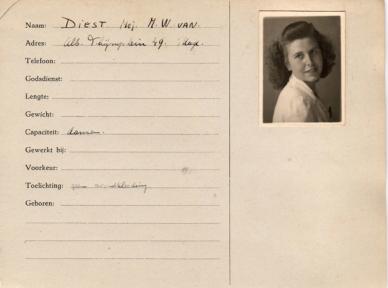 Naam: DIEST Mej. M. W. VAN.
Adres: 49.
Telefoon:
Godsdienst:
Lengte:
Gewicht:
Capaciteit: dansen.
Gewerkt bij:
Voorkeur:
Toelichting:
Geboren: